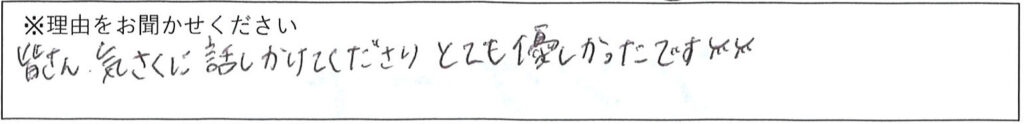 ※理由をお聞かせください
皆さん、気さくに話しかけてくださりとても優しかったです